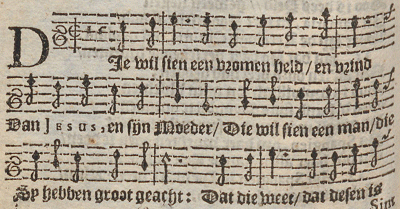 DJe wil sien een vromen held / en vrind
Van JESUS, en sijn Moeder / Die wil sien een man / die
Sy hebben groot geacht: Dat die weet / dat desen is
Sint